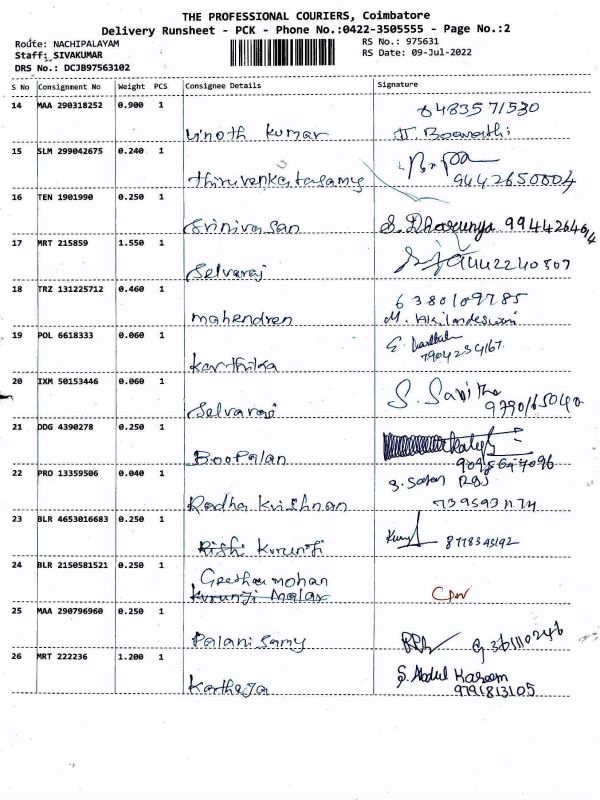 THE PROFESSIONAL COURIERS, Coimbatore
Delivery Runsheet - PCK - Phone No.:0422-3505555 - Page No.:2
Route: NACHIPALAYAM
Staff: SIVAKUMAR
DRS No.: DCJB97563102
RS No.: 975631
RS Date: 09-Jul-2022
S No Consignment No Weight PCS Consignee Details Signature
14 MAA 290318252 0.900 1
Vinoth kumar
15 SLM 299042675 0.240 1
thiruvenkatasamy
16 TEN 1901990 0.250 1
Srinivasan S. Dharunya
17 MRT 215859 1.550 1
Selvaraj
18 TRZ 131225712 0.460 1
mahendren
19 POL 6618333 0.060 1
karthika
20 IXM 50153446 0.060 1
Selvaraj
21 DDG 4390278 0.250 1
Boopalan
22 PRO 13359506 0.040 1
Radha krishnan
23 BLR 4653016683 0.250 1
Rishi Kurunji 8778343192
24 BLR 2150581521 0.250 1
Geetha mohan
25 MAA 290796960 0.250 1
Palani samy
26 MRT 222236 1.200 1
S. Abdul Kareem
9791813105